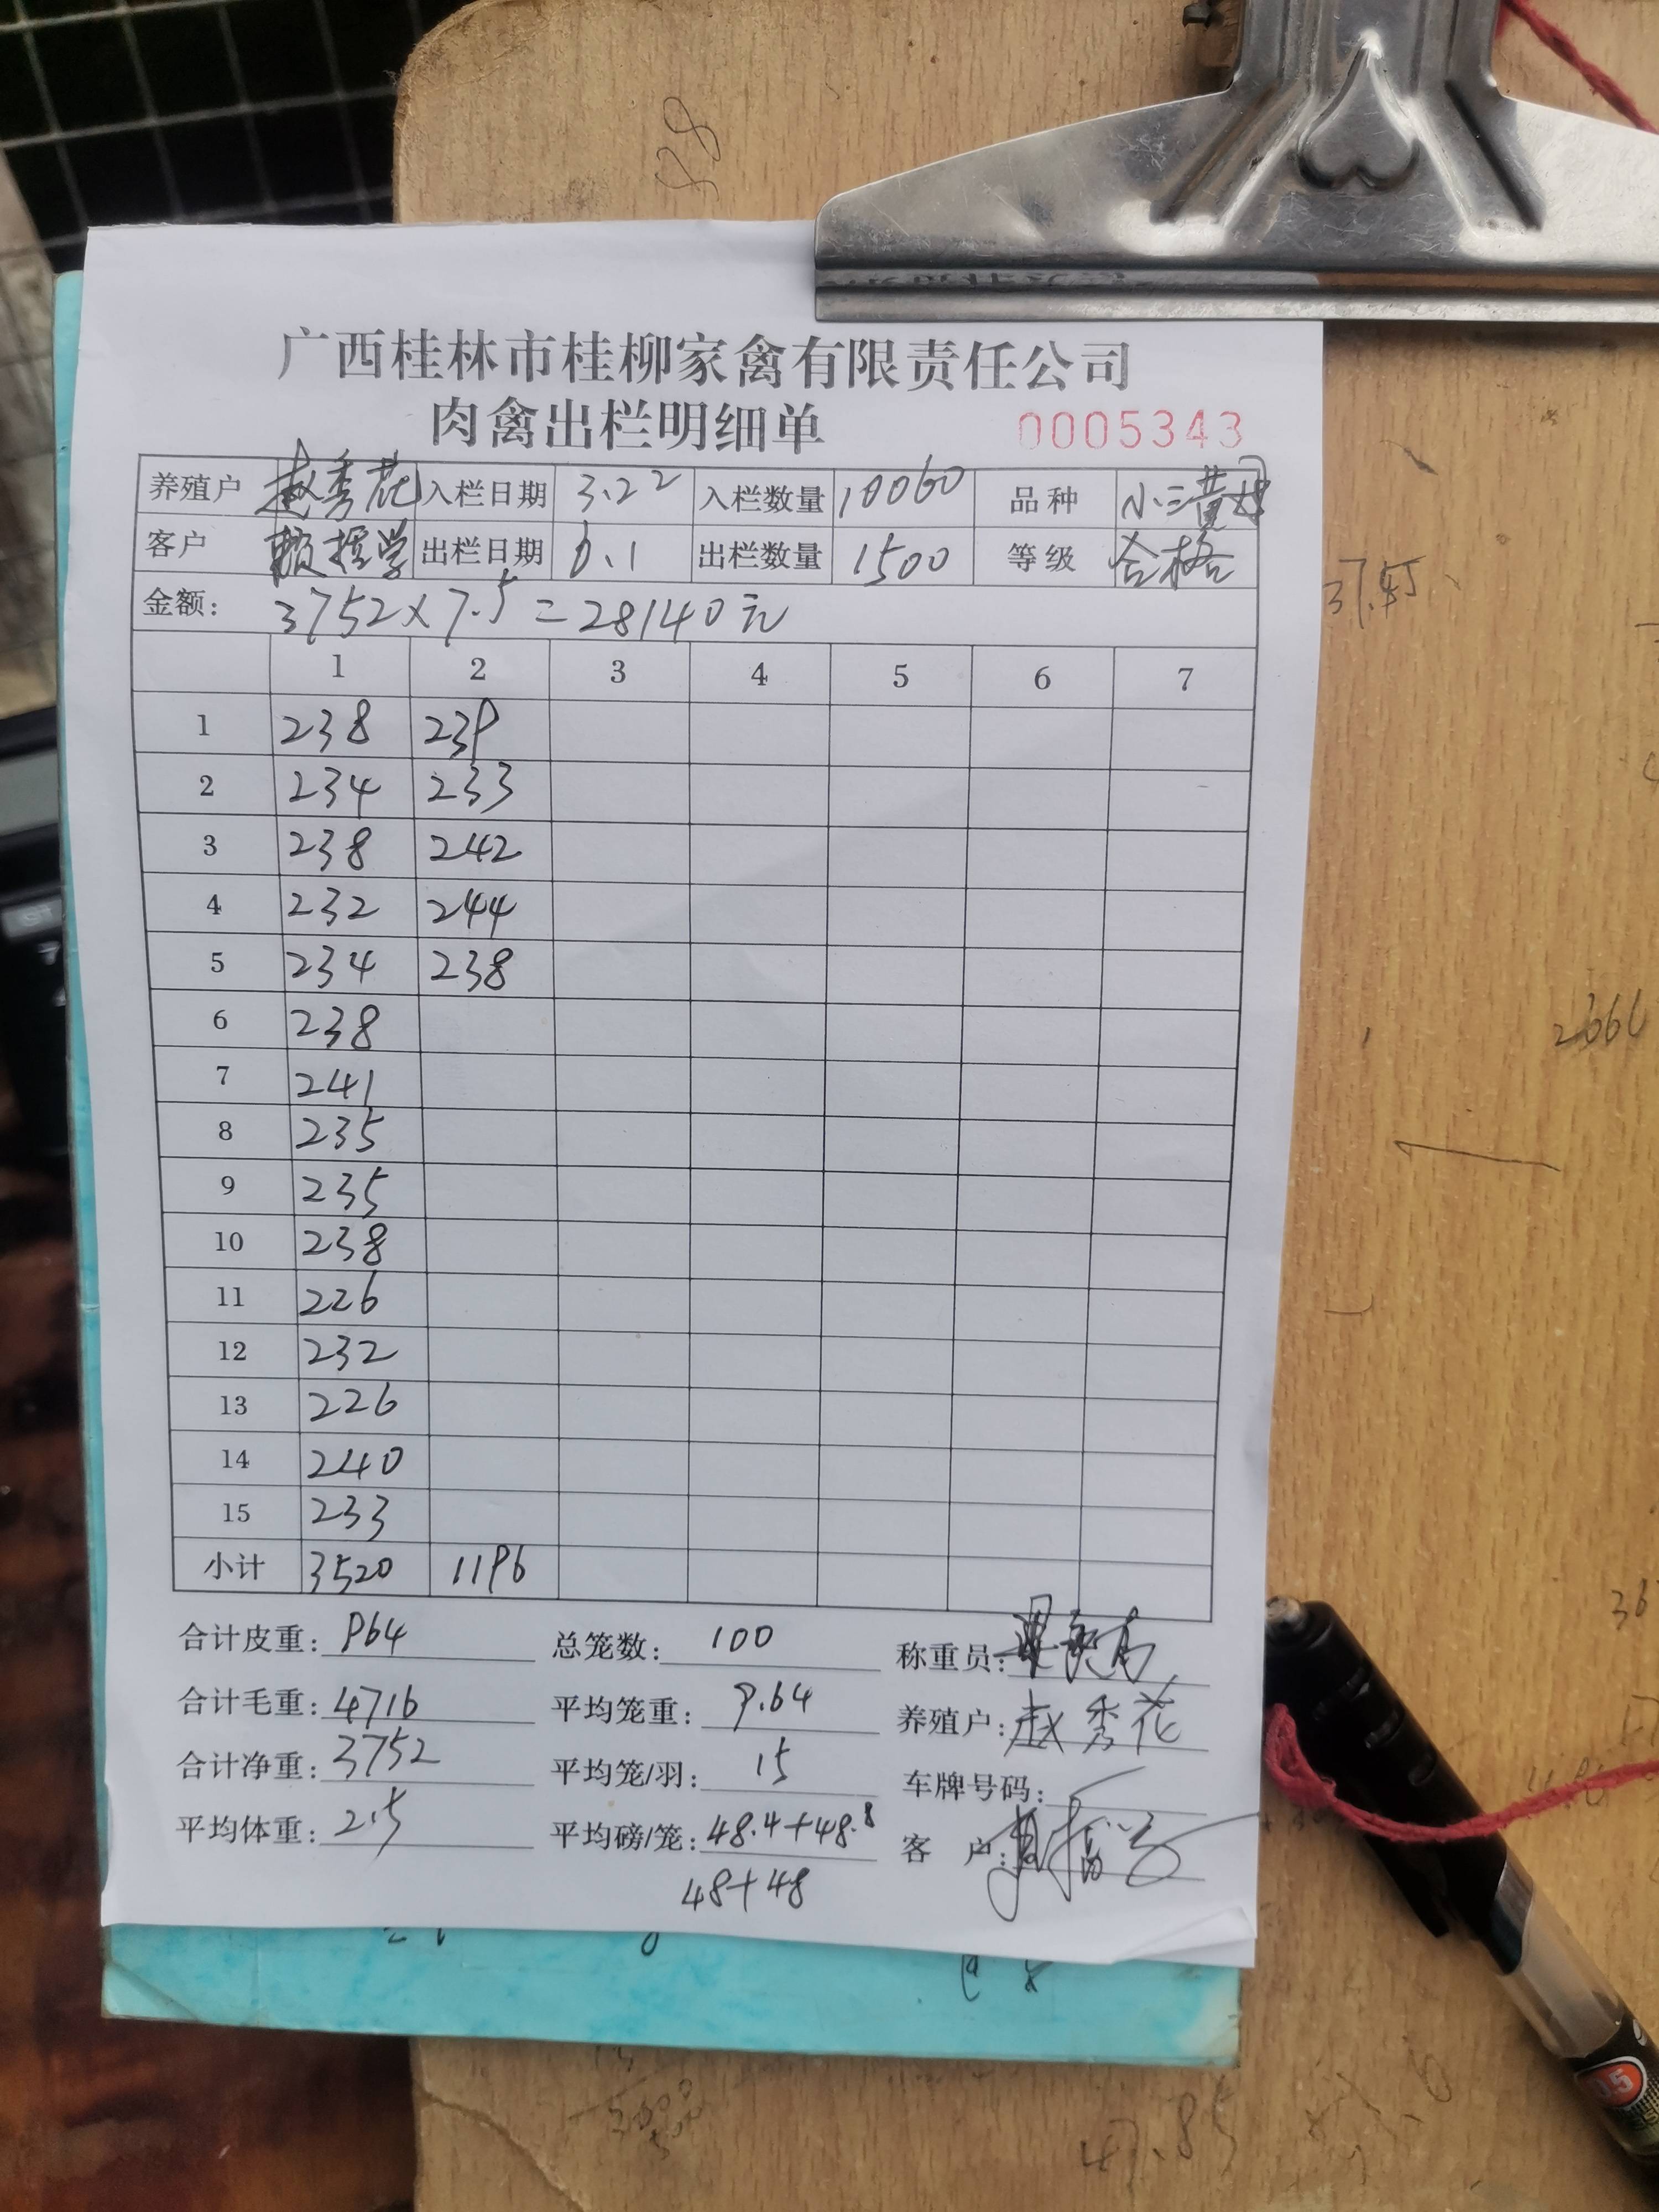 广西桂林市桂柳家禽有限责任公司
肉禽出栏明细单 0005343
养殖户 赵秀花 入栏日期 3.22 入栏数量 10060 品种 小三黄母
客户 出栏日期 6.1 出栏数量 1500 等级 合格
金额: 3752×7.5=28140元
1 2 3 4 5 6 7
1 238 239
2 234 233
3 238 242
4 232 244
5 234 238
6 238
7 241
8 235
9 235
10 238
11 226
12 232
13 226
14 240
15 233
小计 3520 1196
合计皮重: 964 总笼数: 100 称重员:
合计毛重: 4716 平均笼重: 9.64 养殖户: 赵秀花
合计净重: 3752 平均笼/羽: 15 车牌号码:
平均体重: 2.5 平均磅/笼: 48.4+48.8 客 户:
48+48
47.85